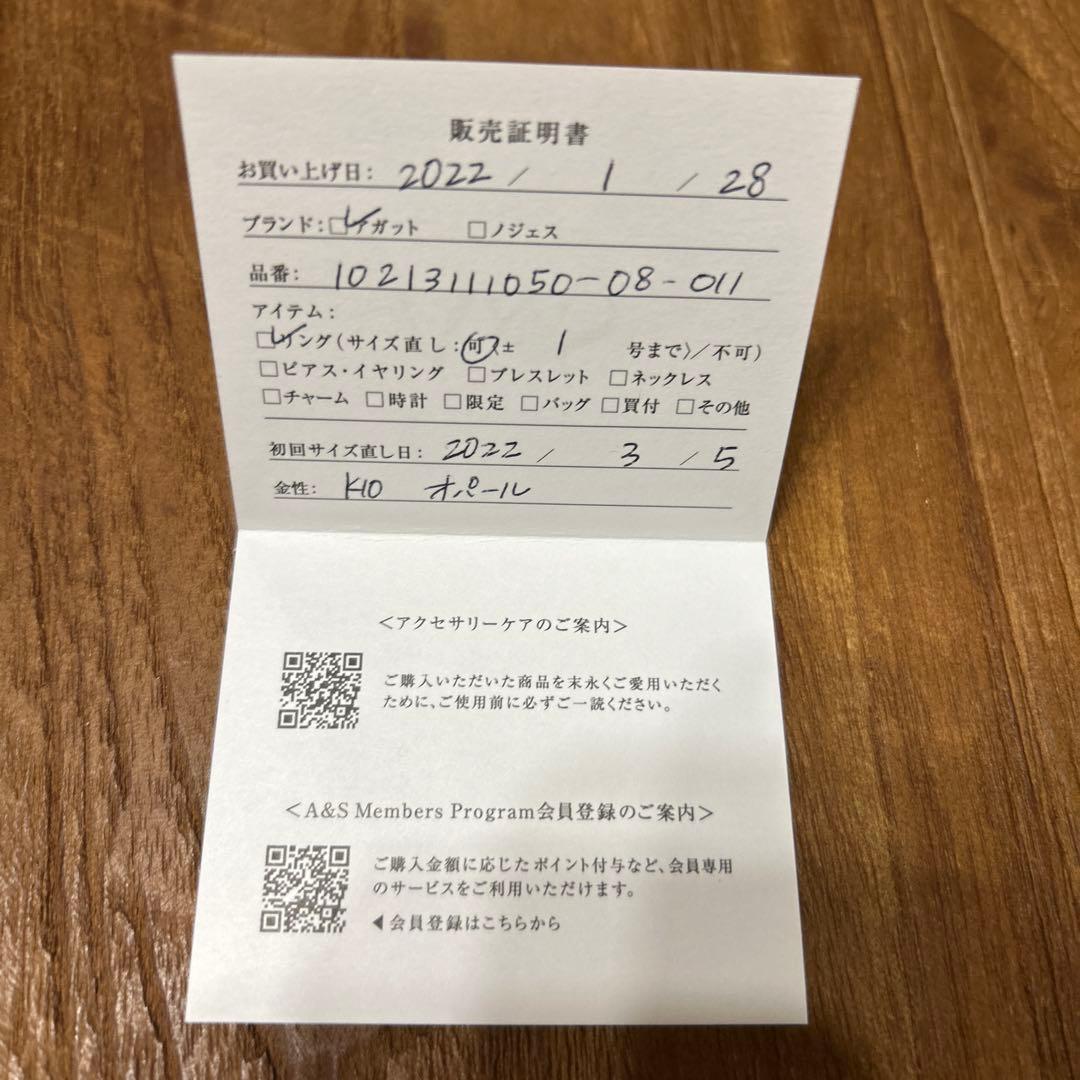 販売証明書
お買い上げ日: 2022 / 1 / 28
ブランド: ☑アガット □ノジェス
品番: 10213111050-08-011
アイテム:
☑リング(サイズ直し:可〈± 1 号まで〉/不可)
□ピアス・イヤリング □ブレスレット □ネックレス
□チャーム □時計 □限定 □バッグ □買付 □その他
初回サイズ直し日: 2022 / 3 / 5
金性: K10 オパール
<アクセサリーケアのご案内>
ご購入いただいた商品を末永くご愛用いただく
ために、ご使用前に必ずご一読ください。
<A&S Members Program会員登録のご案内>
ご購入金額に応じたポイント付与など、会員専用
のサービスをご利用いただけます。
◀会員登録はこちらから